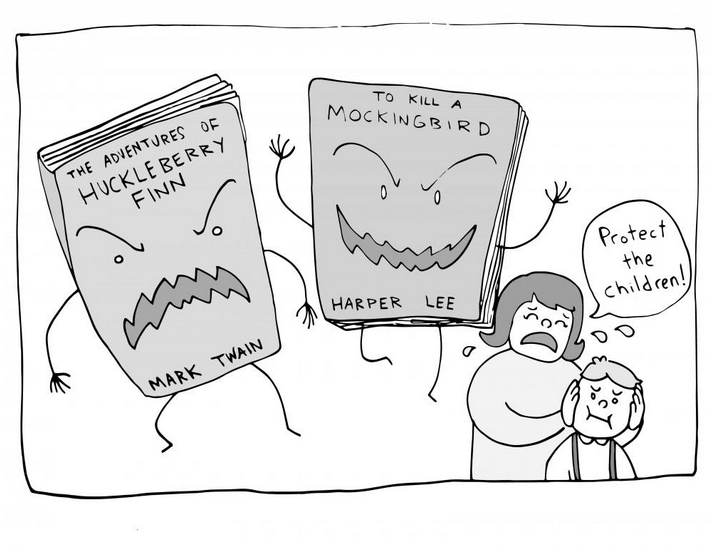 THE ADVENTURES OF
HUCKLEBERRY
FINN
MARK TWAIN
TO KILL A
MOCKINGBIRD
HARPER LEE
Protect
the
children!